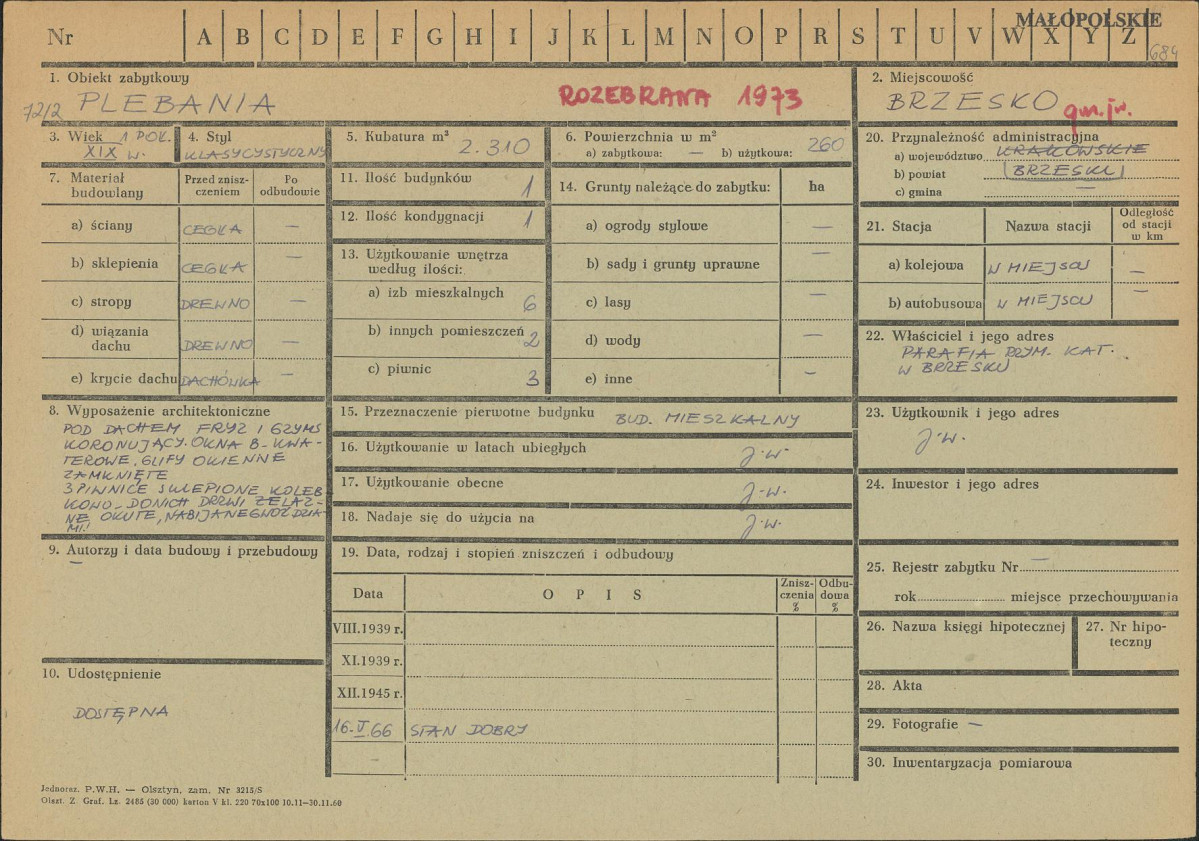 MAŁOPOLSKIE
Nr A B C D E F G H I J K L M N O P R S T U V W X Y Z
684
1. Obiekt zabytkowy
72/2 PLEBANIA
ROZEBRANA 1973
2. Miejscowość
BRZESKO
gm. jw.
3. Wiek 1 POŁ.
XIX w.
4. Styl
KLASYCYSTYCZNY
5. Kubatura m³
2.310
6. Powierzchnia w m²
a) zabytkowa: — b) użytkowa: 260
7. Materiał budowlany
Przed znisz-
czeniem
Po
odbudowie
a) ściany CEGŁA —
b) sklepienia CEGŁA —
c) stropy DREWNO —
d) wiązania
dachu DREWNO —
e) krycie dachu DACHÓWKA —
8. Wyposażenie architektoniczne
POD DACHEM FRYZ I GZYMS
KORONUJĄCY. OKNA 8-KWA-
TEROWE, GLIFY OKIENNE
ZAMKNIĘTE
3 PIWNICE SKLEPIONE KOLEB
KOWO – DO NICH DRZWI ŻELAZ-
NE OKUTE, NABIJANE GWOŹDZIA-
MI.
9. Autorzy i data budowy i przebudowy
—
10. Udostępnienie
DOSTĘPNA
11. Ilość budynków 1
12. Ilość kondygnacji 1
13. Użytkowanie wnętrza
według ilości:
a) izb mieszkalnych 6
b) innych pomieszczeń 2
c) piwnic 3
14. Grunty należące do zabytku: ha
a) ogrody stylowe —
b) sady i grunty uprawne —
c) lasy —
d) wody —
e) inne —
15. Przeznaczenie pierwotne budynku BUD. MIESZKALNY
16. Użytkowanie w latach ubiegłych j.w.
17. Użytkowanie obecne j.w.
18. Nadaje się do użycia na j.w.
19. Data, rodzaj i stopień zniszczeń i odbudowy
Data O P I S Znisz-
czenia
% Odbu-
dowa
%
VIII.1939 r.
XI.1939 r.
XII.1945 r.
16.V.66 STAN DOBRY
–
20. Przynależność administracyjna
a) województwo KRAKOWSKIE
b) powiat BRZESKI
c) gmina —
21. Stacja Nazwa stacji Odległość
od stacji
w km
a) kolejowa W MIEJSCU —
b) autobusowa W MIEJSCU —
22. Właściciel i jego adres
PARAFIA RZYM. KAT.
W BRZESKU
23. Użytkownik i jego adres
j.w.
24. Inwestor i jego adres
25. Rejestr zabytku Nr —
rok miejsce przechowywania
26. Nazwa księgi hipotecznej
27. Nr hipo-
teczny
28. Akta
29. Fotografie —
30. Inwentaryzacja pomiarowa
Jednoraz. P.W.H. — Olsztyn, zam. Nr 3215/S
Olszt. Z. Graf. Lz. 2485 (30 000) karton V kl. 220 70x100 10.11—30.11.60